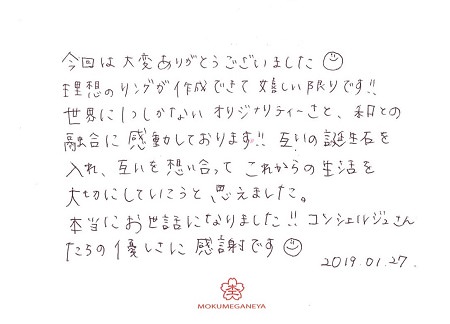 今回は大変ありがとうございました☺
理想のリングが作成できて嬉しい限りです!!
世界に1つしかないオリジナリティーさと、和との
融合に感動しております!! 互いの誕生石を
入れ、互いを想い合って これからの生活を
大切にしていこうと思えました。
本当にお世話になりました!! コンシェルジュさん
たちの優しさに感謝です☺
2019.01.27.
MOKUMEGANEYA